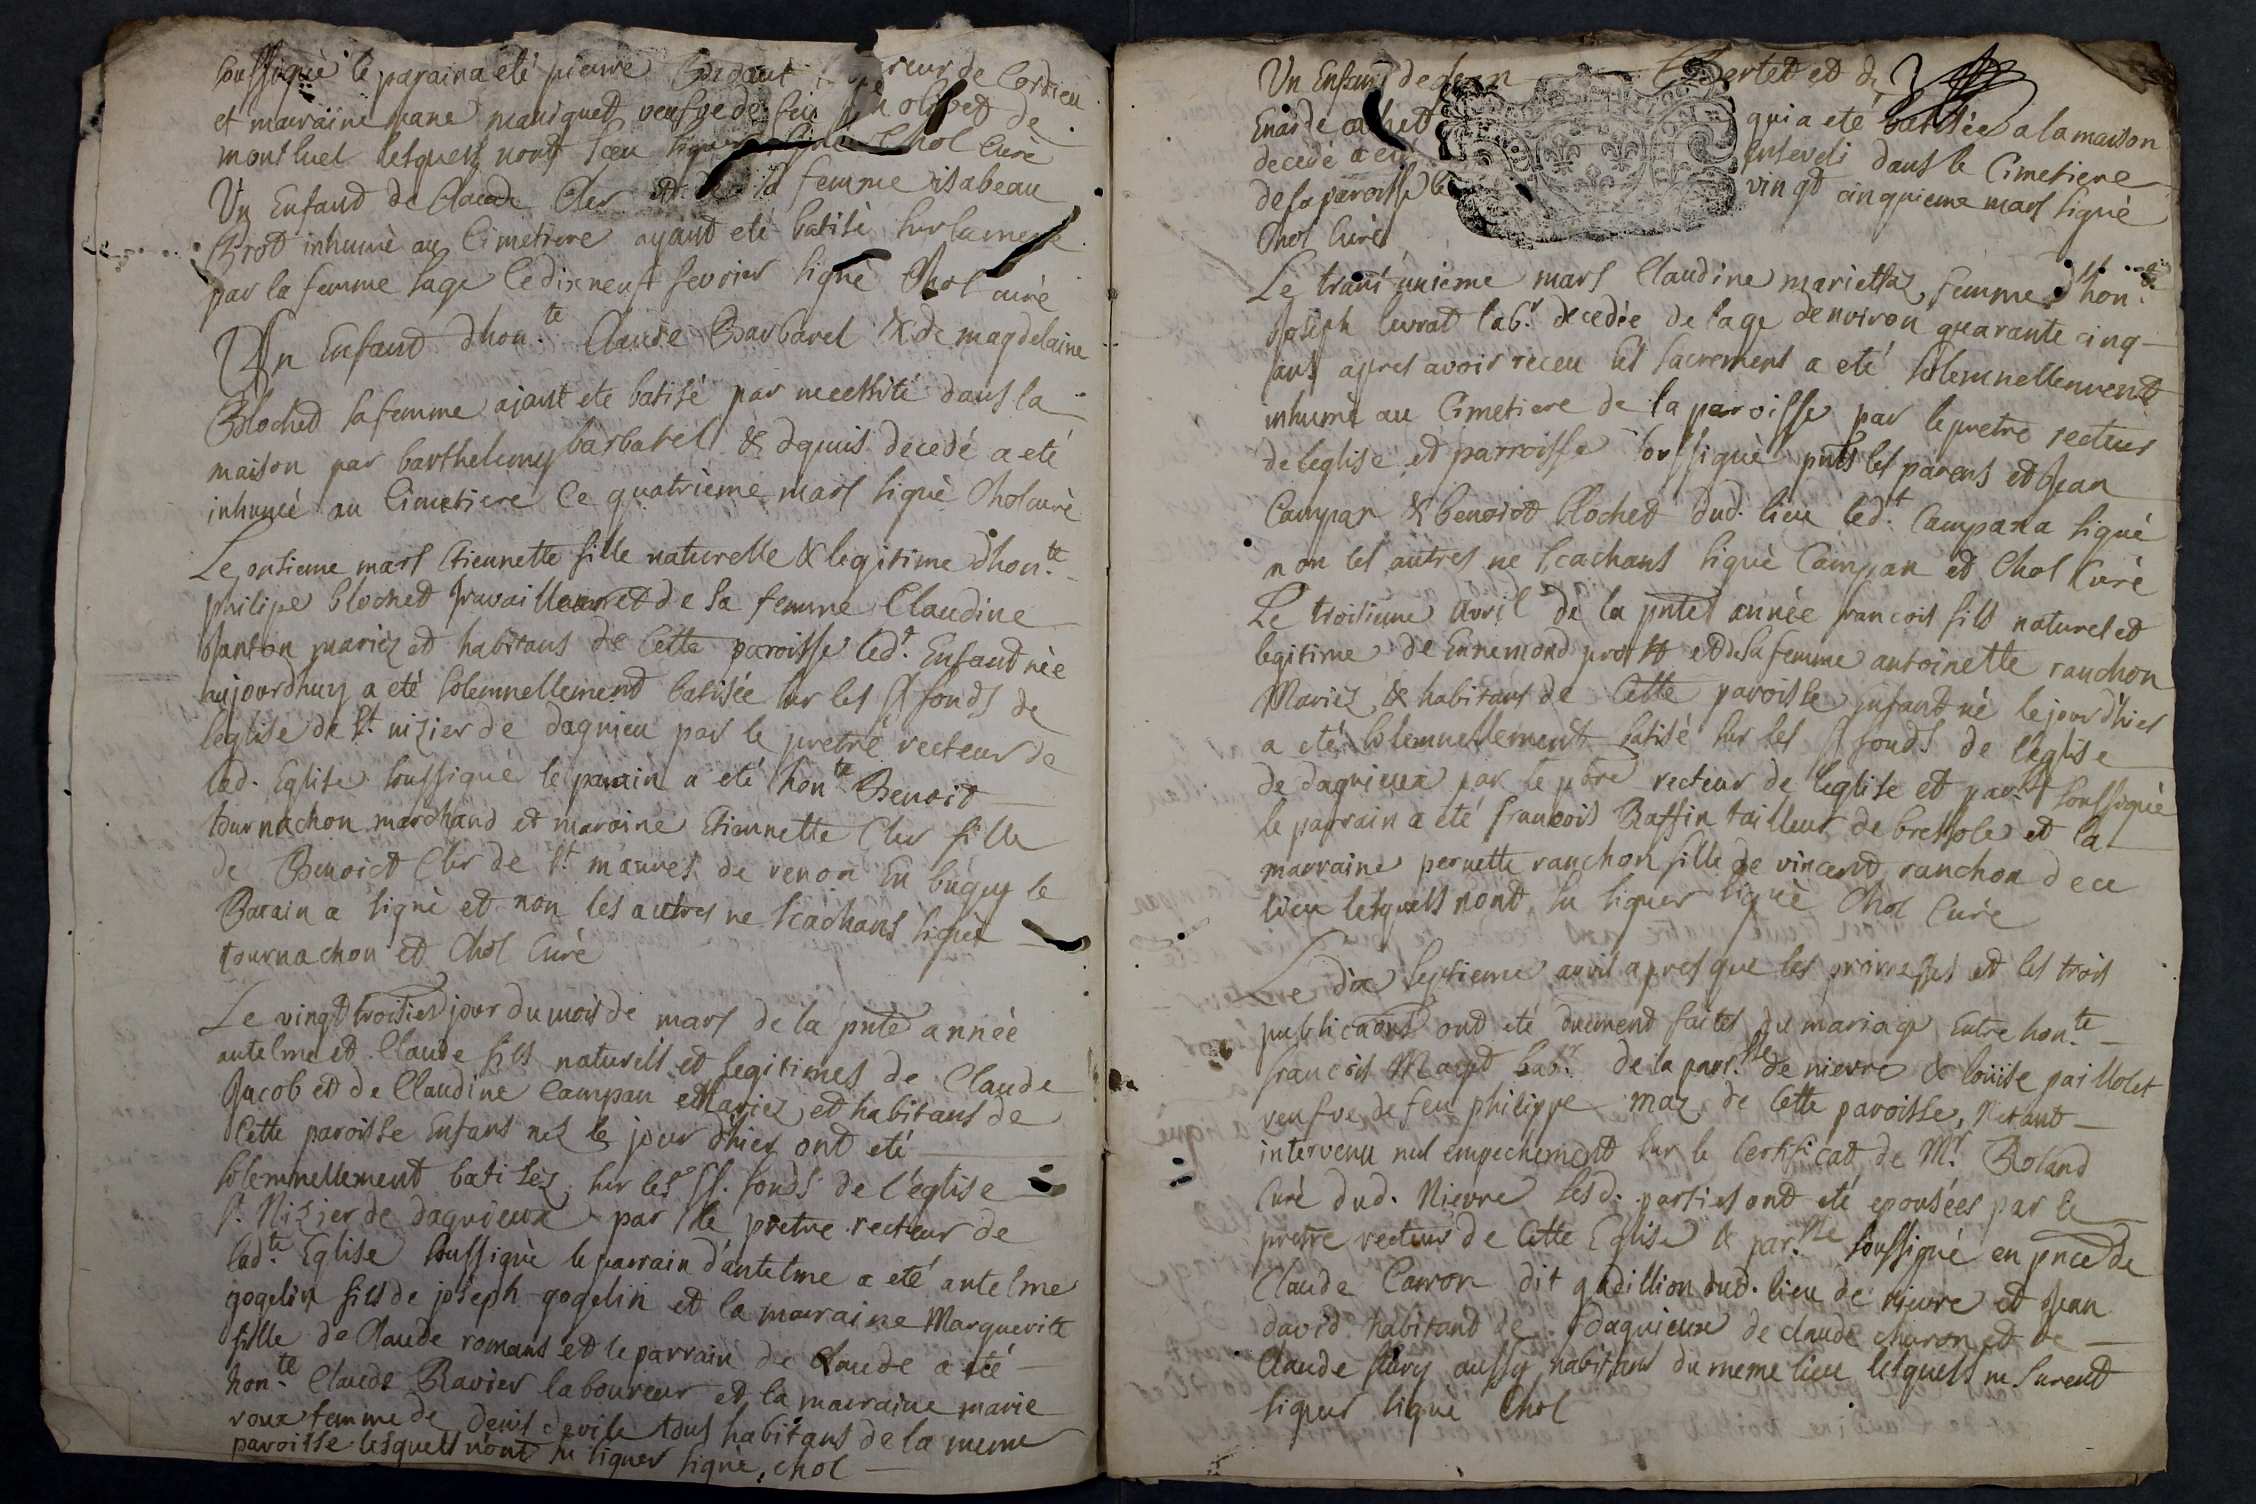 soussigné le parain a eté pierre Bidaut reur de Cordieu
et mairaine jane maniquet veufve de feu olivet de
montluel lesquels nont sceu signer signé Chol Curé
Un Enfant de Claude Cler et de sa femme isabeau
Brot inhumé au Cimetiere ayant eté batisé sur
par la femme sage le dix neuf fevrier signé Chol curé
Un Enfant dhon.te Claude Barbarel & de magdelaine
Blochet sa femme ajant ete batisé par necessité dans la
maison par barthelemy barbarel & dequis decedé a eté
inhumé au Cimetiere le quatrieme mars signé Chol curé
Le onsieme mars Etiennette fille naturelle & legitime dhon.te
philipe blochet travailleur et de sa femme Claudine
Janton mariez et habitans de Cette paroisse led.t Enfant née
aujourdhuy a eté solemnellement batisée sur les ss fonds de
leglise de St. nizier de dagnieu par le pretre recteur de
lad. Eglise soussigné le parain a eté hon.te Benoit
tournachon marchand et maraine Etiennette Cler fille
de Benoict Cler de St. maurel de renon En bugey le
Parain a signé et non les autres ne scachans signé
tournachon et Chol Curé
Le vingt troisieme jour du mois de mars de la pnte année
antelme et Claude fils naturels et legitimes de Claude
Jacob et de Claudine Campan Mariez et habitans de
Cette paroisse Enfans nez le jour dhier ont eté
solemnellement batisez sur les ss. fonds de l'église
St. Nizier de dagnieux par le pretre recteur de
lad.te Eglise soussigné le parrain d'antelme a eté antelme
gogelin fils de joseph gogelin et la mairaine Marguerite
fille de Claude romans et le parrain de Claude a eté
hon.te Claude Ravier laboureur et la mairaine marie
roux femme de denis devile tous habitans de la meme
paroisse lesquels n'ont su signer signé, chol
Un Enfant de Jean Bertet et de
Enarde ochet qui a eté batisée a la maison
decedé a eté Enseveli dans le Cimetiere
de la paroisse le vingt cinquieme mars signé
Chol Curé
Le trant unieme mars Claudine mariettaz femme dhon.te
Joseph levrat lab.r decedée de lage denviron quarante cinq
ans apres avoir receu les sacremens a eté solemnellement
inhumé au Cimetiere de la paroisse par le pretre recteur
de leglise et parroisse soussigné pnts les parens et Jean
Campan & benoist blochet dud. lieu led.t Campan a signé
non les autres ne scachans signé Campan et Chol Curé
Le troisieme avril de la pnte année francois fils naturel et
legitime de Ennemond prost et de sa femme antoinette ranchon
Mariez & habitans de Cette paroisse enfant né le jour d'hier
a eté solemnellement batisé sur les ss fonds de l'eglise
de dagnieux par le pbre recteur de leglise et par.sse soussigné
le parrain a été francois Raffin tailleur de bressole et la
marraine pernette ranchon fille de vincent ranchon de ce
lieu lesquels nont su signer signé Chol Curé
Le dix septieme avril apres que les promesses et les trois
publicaons ont eté duement faites du mariage Entre hon.te
francois Mayt lab.r de la parr.sse de nievre & loüise paillolet
veufve de feu philippe maz de Cette paroisse, N'etant
intervenu nul empechement sur le Certificat de M.r Roland
Curé dud. Nievre lesd. parties ont eté epousées par le
pretre recteur de Cette Eglise & par.sse soussigné en pnce de
Claude Carron dit gadillion dud. lieu de nievre et Jean
david habitant de dagnieux de claude charon et de
Claude fleury aussy habitans du meme lieu lesquels ne surent
signer signé Chol